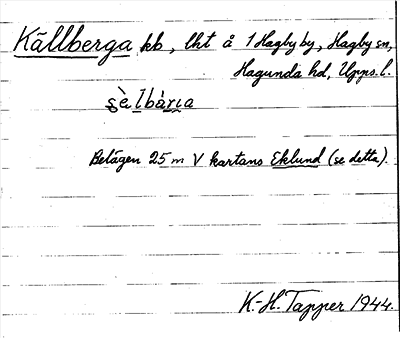 Källberga kb, lht å 1 Hagby by, Hagby sn,
Hagunda hd, Upps. l.
s̬èlbàrıa
Belägen 25 m V kartans Eklund (se detta).
K.-H. Tapper 1944.